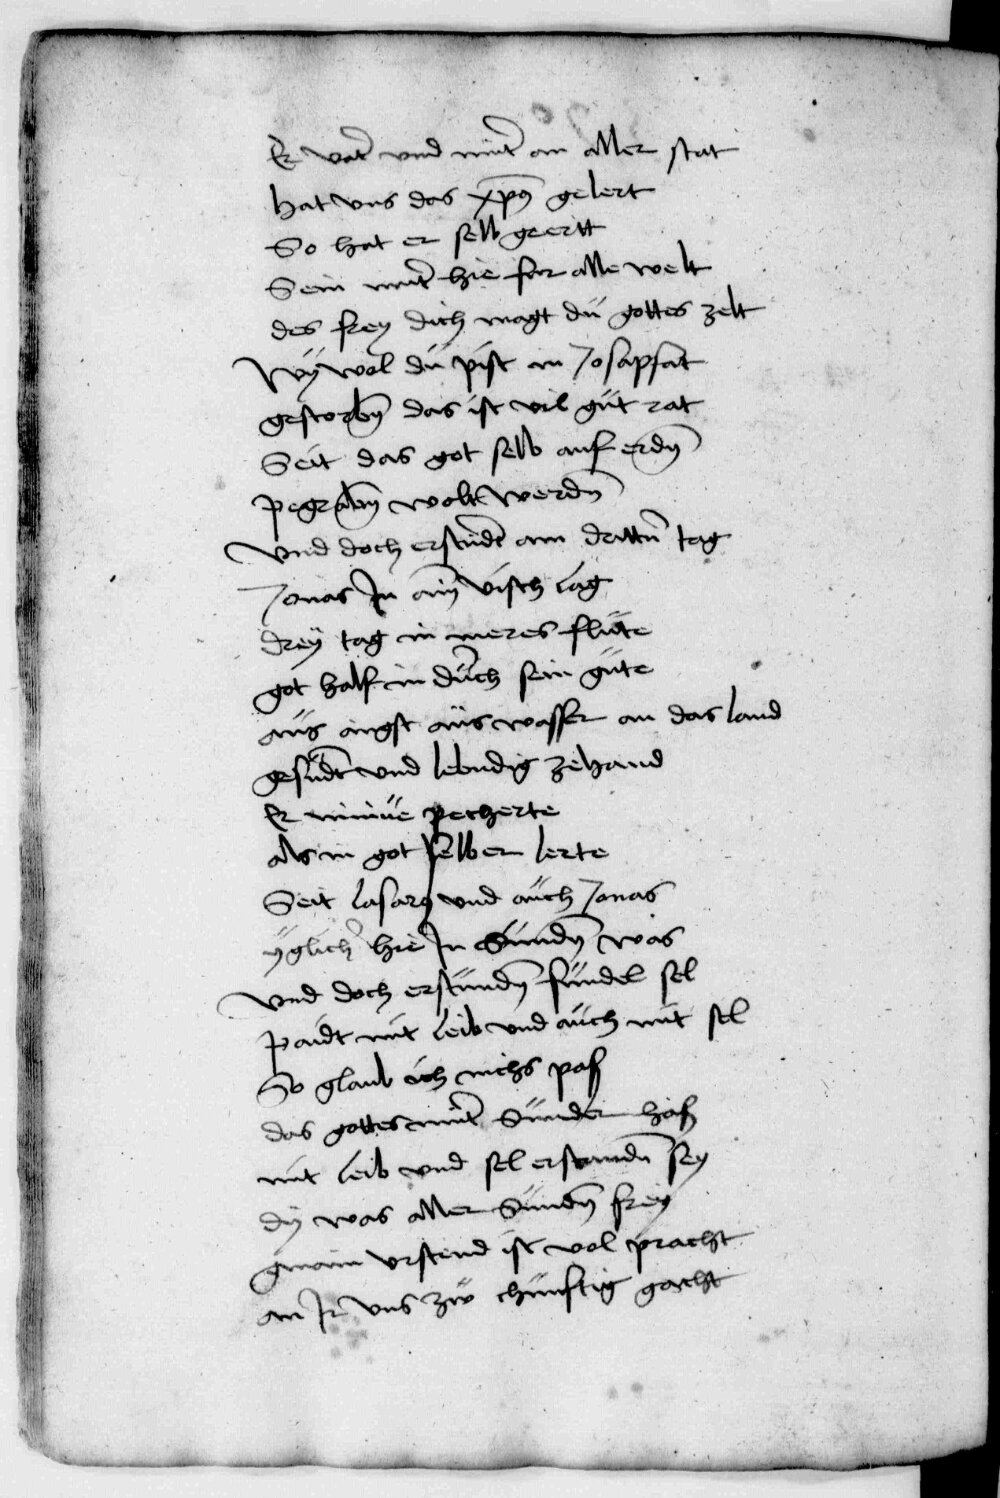 Er vat͛ vnd mut͛ an aller stat
hat vns das xp̄ꝯ gelert
So hat er selb geertt
Sein mut͛ hie for alle welt
des frey dich magt dü gottes zelt
Wÿ wol dü pist in Josaphat
gestorbn̄ das ist vil güt rat
Seit das got selb auf erdn̄
Pegrabn̄ wolt werdn̄
Vnd doch erstündt am drittn̄ tag
Jonas In aim̄ visch lag
drey tag in meres flüte
got half in dürch sein güte
aüs angst aüs wasser an das land
gesündt vnd lebndig zehand
Er niniue pecherte
als in got selber lerte
Seit lasarꝯ vnd aüch Jonas
ÿglich͛ hie In Sündn̄ was
Vnd doch erstündn̄ sünder sel
Paidt mit leib vnd aüch mit sel
So glaub ich nichs pas
das gottes mut͛ Sünder has
mit leib vnd sel erstandn̄ sey
dÿ was aller Sündn̄ freÿ
gmain vrstend ist vol pracht
an Ir vns zw chünftig gacht